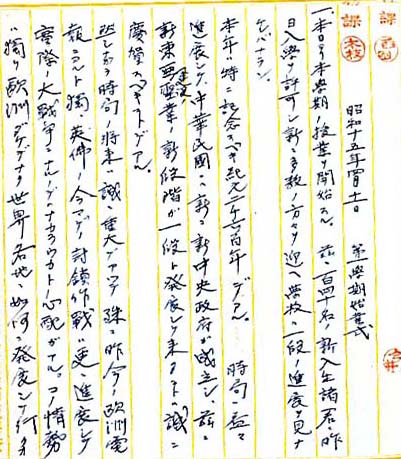 昭和十五年四月十一日　第一學期始業式
一、本日ヨリ本學期ノ授業ヲ開始スル、茲ニ百四十名ノ新入生諸君ハ昨
日入學ヲ許可シ新シキ多数ノ方々ヲ迎ヘ學校ニ一段ノ進展ヲ見ナ
ケレバナラン
本年ハ特ニ記念スベキ紀元二千六百年デアル　時局ハ益々
進展シテ中華民國ニ新シキ新中央政府ガ成立シ、茲ニ
新東亜建設ノ新段階ガ一段ト発展シテ来タコトハ誠ニ
慶賀スベキコトデアル
然シ乍ラ時局ノ将来ハ誠ニ重大デアツテ殊ニ昨今ノ欧洲電
報ニヨルト獨ト英佛ノ今マデノ封鎖作戦ハ更ニ進展シテ
實際ノ大戦争ニナルノデナカラウカト心配ガアル。コノ情勢
ハ獨リ欧洲ダケデナク世界各地ニ如何ニ発展シテ行クカ